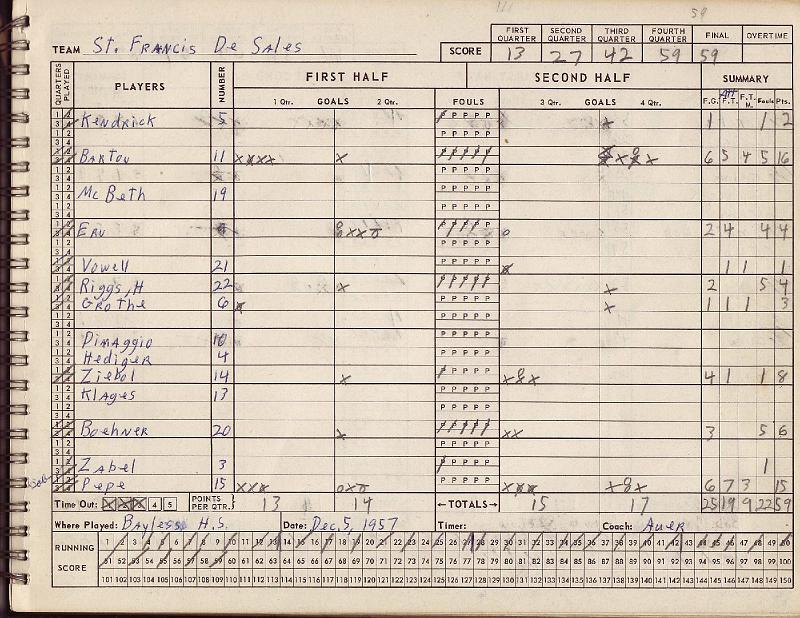 59
FIRST QUARTER SECOND QUARTER THIRD QUARTER FOURTH QUARTER FINAL OVERTIME
TEAM St. Francis De Sales SCORE 13 27 42 59 59
QUARTERS PLAYED PLAYERS NUMBER FIRST HALF SECOND HALF SUMMARY
1 Qtr. GOALS 2 Qtr. FOULS 3 Qtr. GOALS 4 Qtr. F.G. Att F.T. F.T. M. Fouls Pts.
Kendrick 5 x 1 1 2
Barton 11 6 5 4 5 16
McBeth 19
Erv 2 4 4 4
Vowell 21 1 1 1
Riggs, H 22 x x 2 5 4
Grothe 6 x 1 1 1 3
Dimaggio 10
Hediger 4
Ziebol 14 x 4 1 1 8
Klages 13
Boehner 20 x xx 3 5 6
Zabel 3 1
Pepe 15 6 7 3 15
Time Out: 1 2 3 4 5 POINTS PER QTR. 13 14 ←TOTALS→ 15 17 25 19 9 22 59
Where Played: Bayless H.S. Date: Dec, 5, 1957 Timer: Coach: Auer
RUNNING SCORE
1 2 3 4 5 6 7 8 9 10 11 12 13 14 15 16 17 18 19 20 21 22 23 24 25 26 27 28 29 30 31 32 33 34 35 36 37 38 39 40 41 42 43 44 45 46 47 48 49 50
51 52 53 54 55 56 57 58 59 60 61 62 63 64 65 66 67 68 69 70 71 72 73 74 75 76 77 78 79 80 81 82 83 84 85 86 87 88 89 90 91 92 93 94 95 96 97 98 99 100
101 102 103 104 105 106 107 108 109 110 111 112 113 114 115 116 117 118 119 120 121 122 123 124 125 126 127 128 129 130 131 132 133 134 135 136 137 138 139 140 141 142 143 144 145 146 147 148 149 150